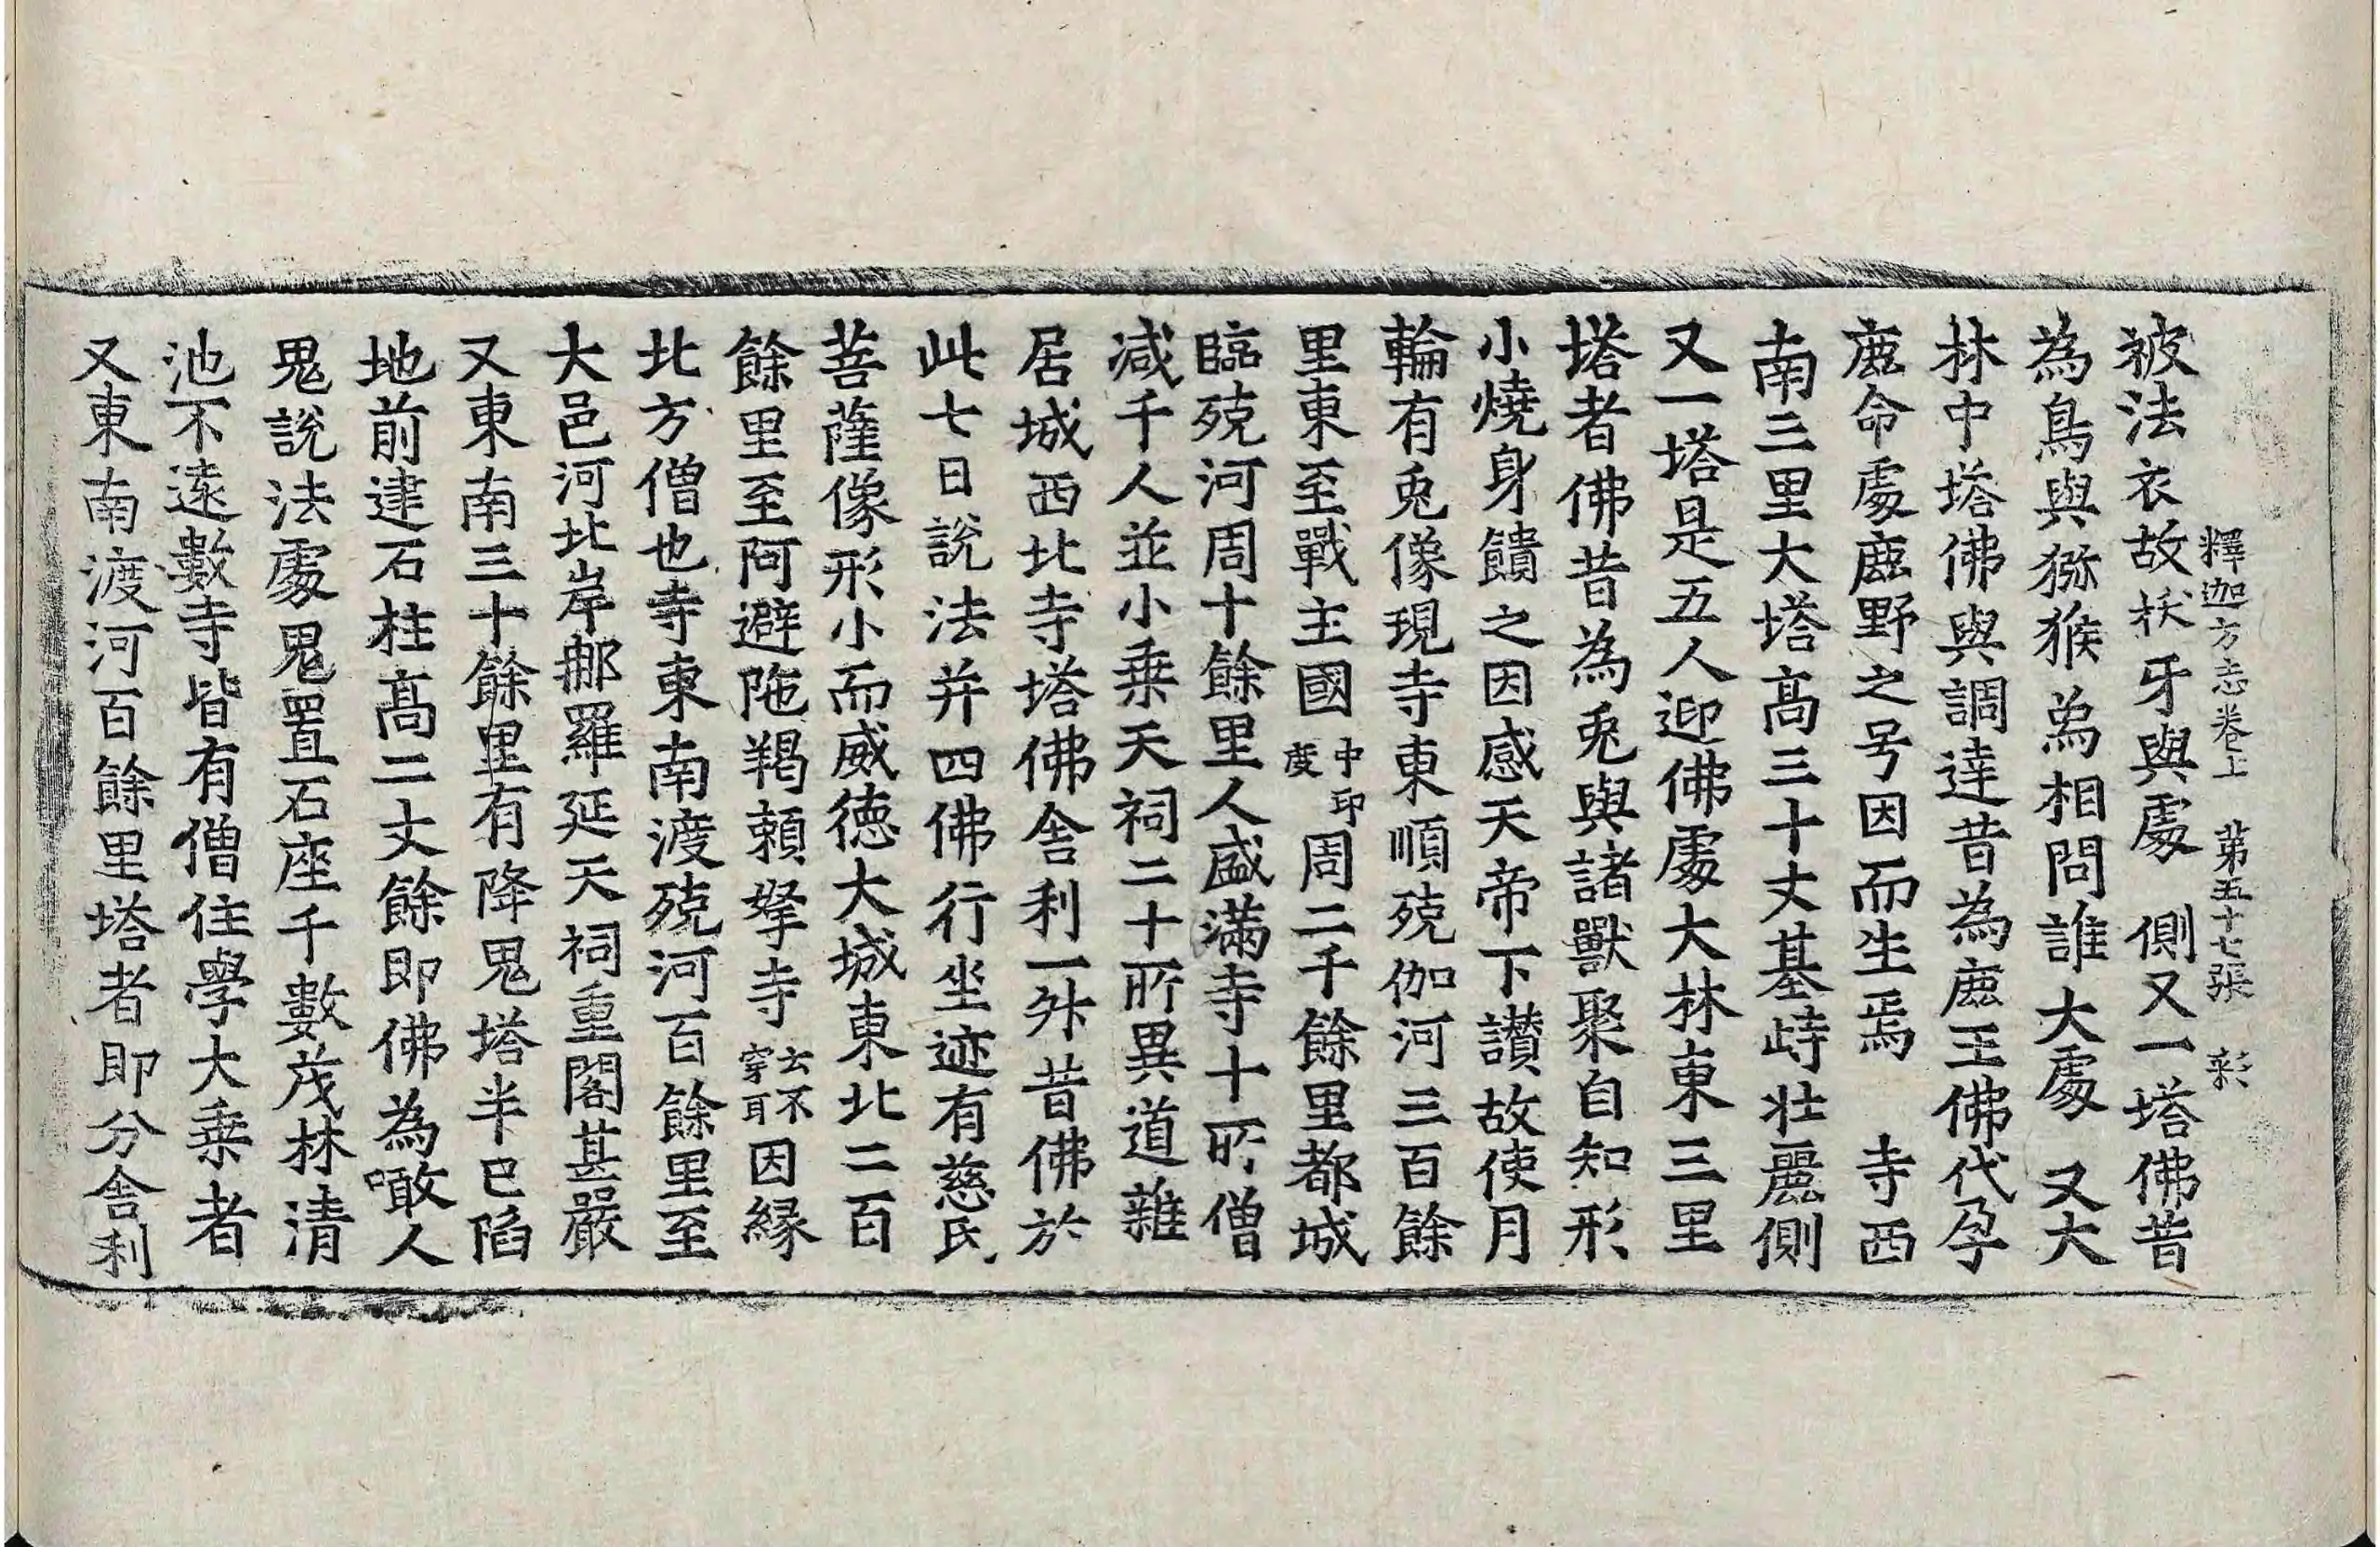 釋迦方志卷上　第五十七張　彩
被法衣故柭牙與處　側又一塔佛昔
為鳥與猕猴為相問誰大處　又大
林中塔佛與調達昔為鹿王佛代孕
鹿命處鹿野之号因而生焉　寺西
南三里大塔髙三十丈基峙壯麗側
又一塔是五人迎佛處大林東三里
塔者佛昔為兎與諸獸聚自知形
小燒身饋之因感天帝下讃故使月
輪有兎像現寺東順殑伽河三百餘
里東至戰主國中印度周二千餘里都城
臨殑河周十餘里人盛滿寺十所僧
减千人並小乗天祠二十所異道雜
居城西北寺塔佛舎利一舛昔佛於
此七日說法并四佛行坐迹有慈氏
菩薩像形小而威徳大城東北二百
餘里至阿避陁羯頼拏寺云不穿耳因縁
北方僧也寺東南渡殑河百餘里至
大邑河北岸那羅延天祠重閣甚嚴
又東南三十餘里有降鬼塔半已陷
地前建石柱髙二丈餘即佛為噉人
鬼說法處鬼置石座千數茂林清
池不遠數寺皆有僧住學大乗者
又東南渡河百餘里塔者即分舎利